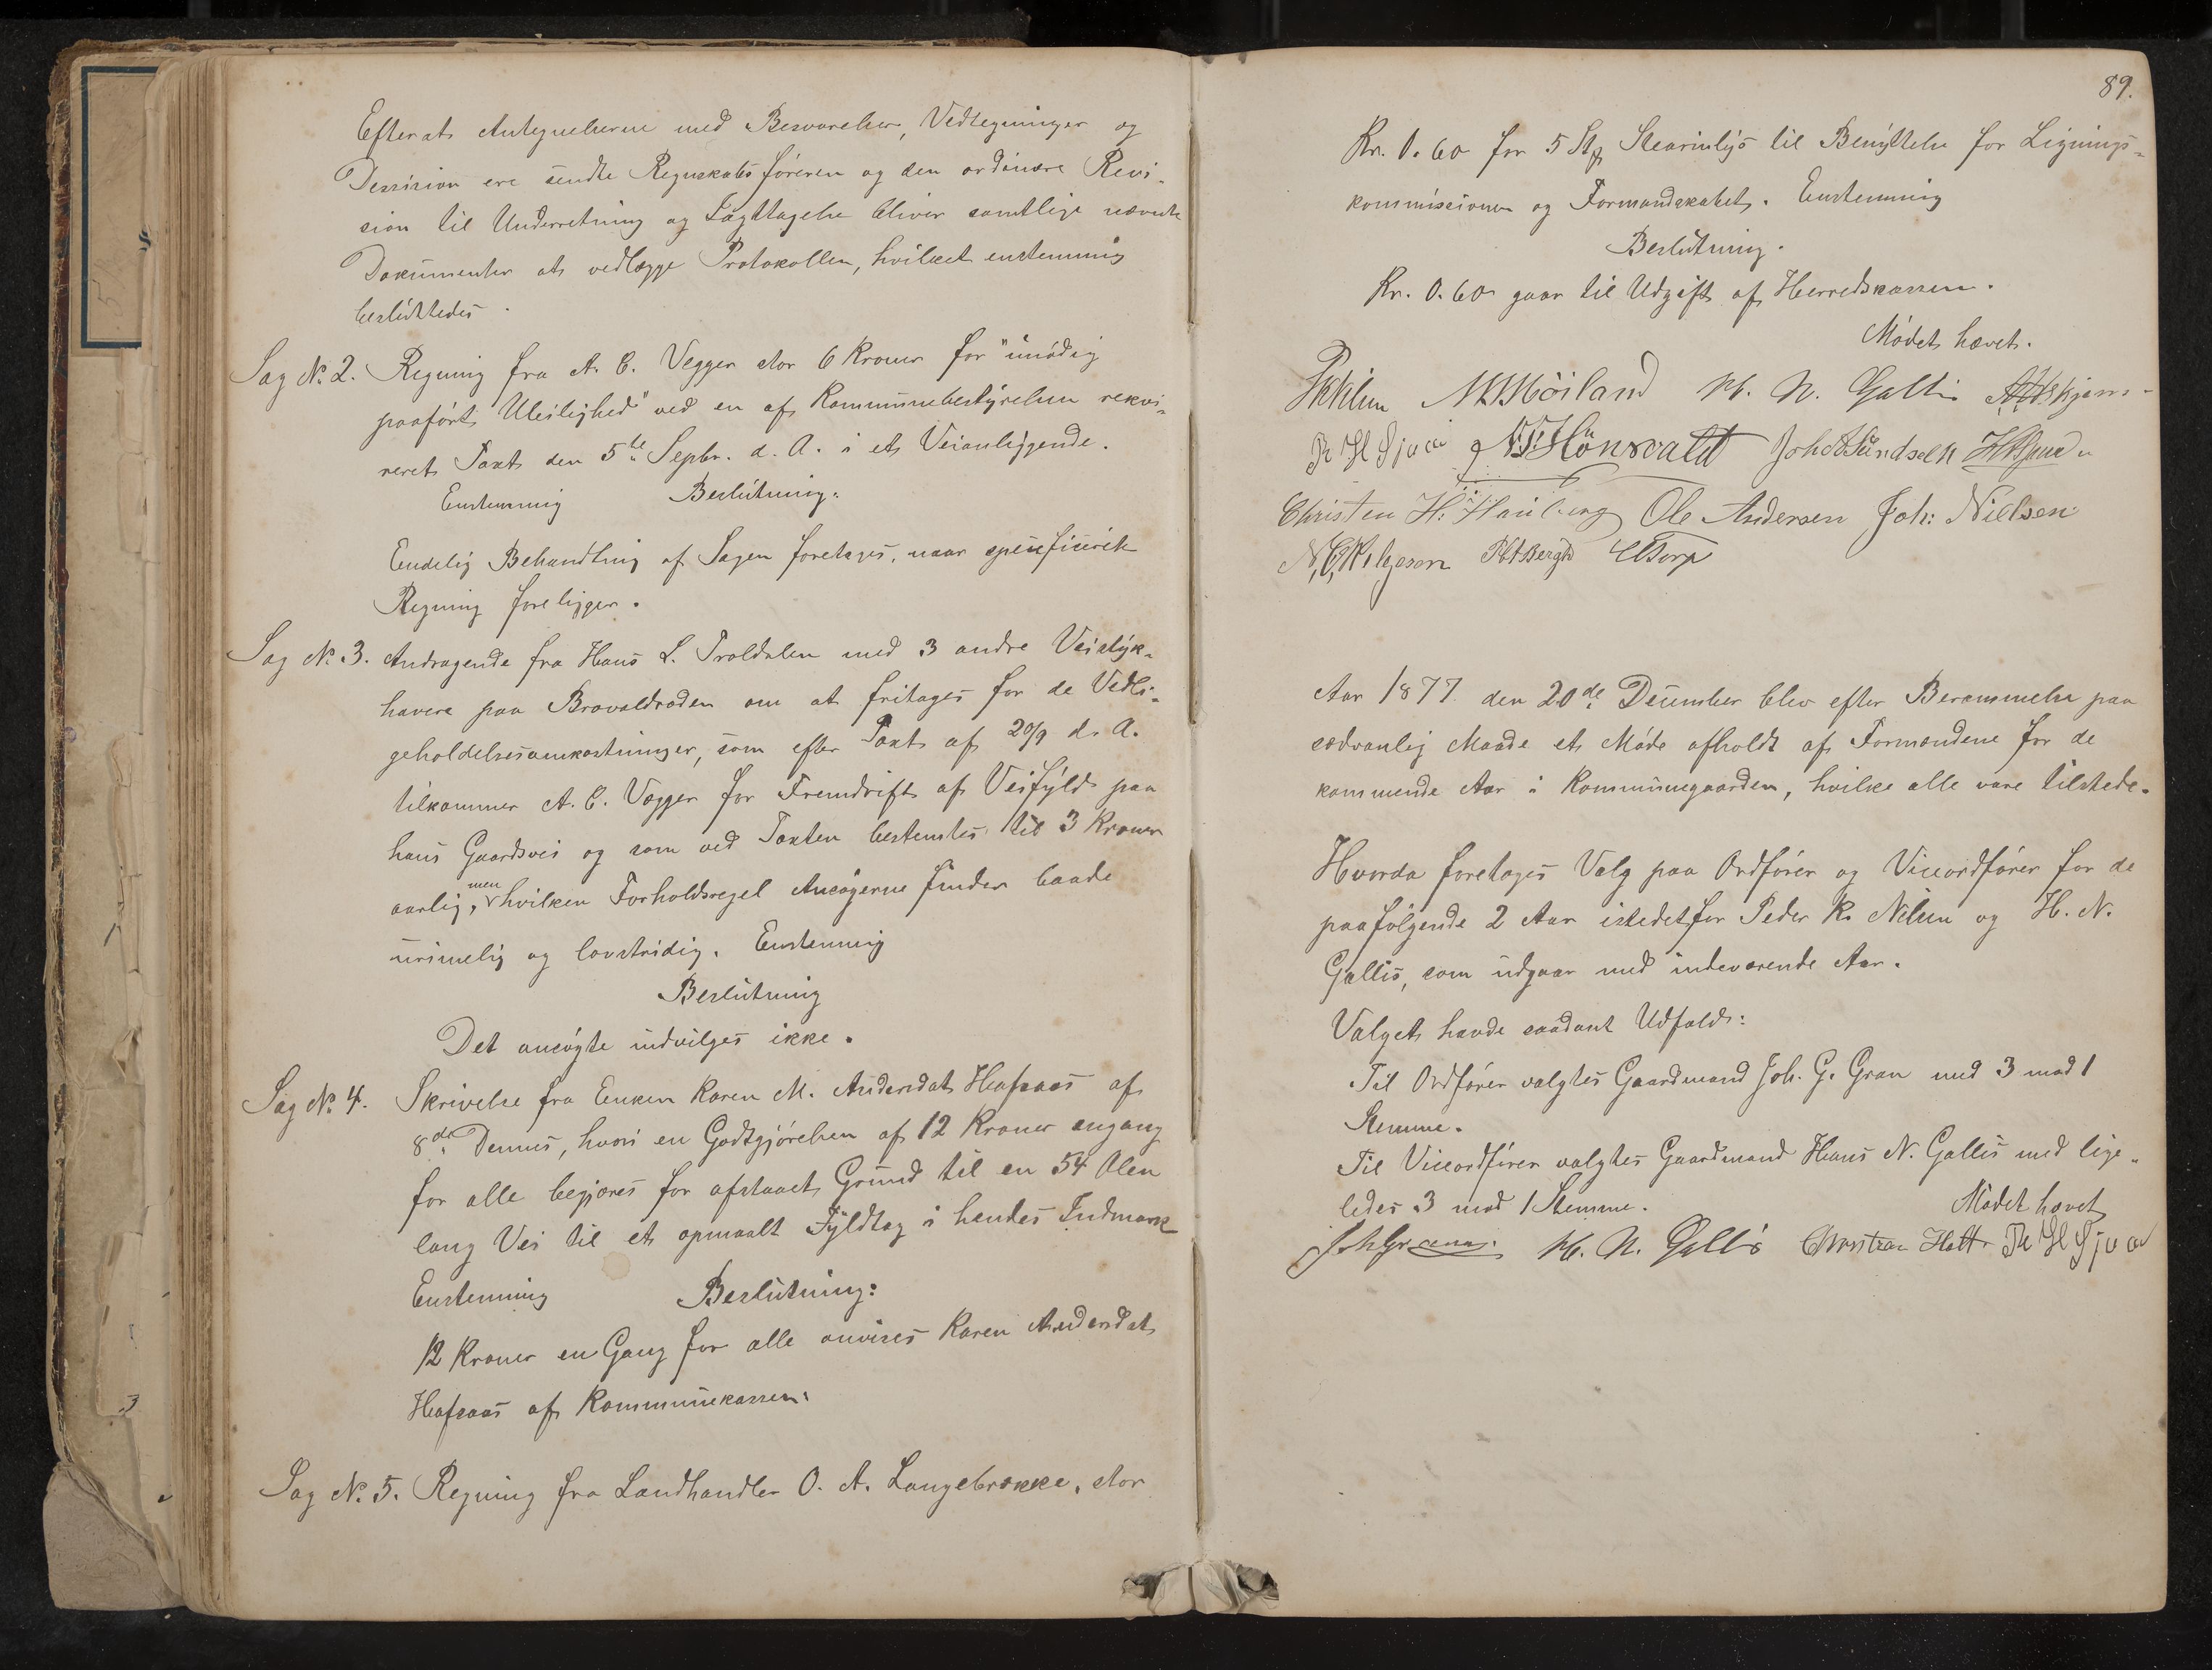 Efterat Antegnelserne med Besvarelser, Vedtegninger og
Decision ere sendte Regnskabsføreren og den ordinære Revi-
sion til Underretning og Iagttagelse bliver samtlige nævnte
Dokumenter at vedlægge Protokollen, hvilket enstemmig
besluttedes.
Sag No. 2. Regning fra A. C. Vegger stor 6 Kroner for "unødig
paaført Uleilighed" ved en af Kommunebestyrelsen rekvi-
reret Taxt den 5te Septbr. d. A. i et Veianliggende.
Enstemmig Beslutning:
Endelig Behandling af Sagen foretages, naar specificeret
Regning foreligger.
Sag No. 3. Andragende fra Hans L. Troldalen med 3 andre Veistyk-
havere paa Brovoldroden om at fritages for de Vedli-
geholdelsesomkostninger, som efter Taxt af 20/9 d. A.
tilkommer A. C. Vegger for Fremdrift af Veifyld paa
hans Gaardsvei og som ved Taxten bestemtes til 3 Kroner
aarlig, men hvilken Forholdsregel Ansøgerne finder baade
urimelig og lovstridig. Enstemmig
Beslutning
Det ansøgte indvilges ikke.
Sag No. 4. Skrivelse fra Enken Karen M. Andersdat. Hafsaas af
8de Dennes, hvori en Godtgjørelsen af 12 Kroner engang
for alle begjæres for afstaaet Grund til en 54 Alen
lang Vei til et opmaalt Fyldtag i hendes Indmark
Enstemmig Beslutning:
12 Kroner en Gang for alle anvises Karen Andersdat.
Hafsaas af Kommunekassen.
Sag No. 5. Regning fra Landhandler O. A. Langebrække, stor
89.
Kr. 0.60 for 5 Stk Stearinlys til Benyttelse for Lignings-
kommissionen og Formandskabet. Enstemmig
Beslutning.
Kr. 0.60 gaar til Udgift af Herredskassen.
Mødet hævet.
PKNilsen Høiland H. N. Gallis
R H Sjuve Hønsvald Joh
Christen H. Hauberg Ole Andersen Joh: Nielsen
N, Helgesen Bergh Torp
Aar 1877 den 20de December blev efter Berammelse paa
sædvanlig Maade et Møde afholdt af Formændene for de
kommende Aar i Kommunegaarden, hvilke alle vare tilstede.
Hvorda foretages Valg paa Ordfører og Viceordfører for de
paafølgende 2 Aar istedetfor Peder K. Nilsen og H. N.
Gallis, som udgaar med indeværende Aar.
Valget havde saadant Udfald:
Til Ordfører valgtes Gaardmand Joh. G. Gran med 3 mod 1
Stemme.
Til Viceordfører valgtes Gaardmand Hans N. Gallis med lige-
ledes 3 mod 1 Stemme. Mødet hævet
JohGran. H. N. Gallis Christian Holt R H Sjuve